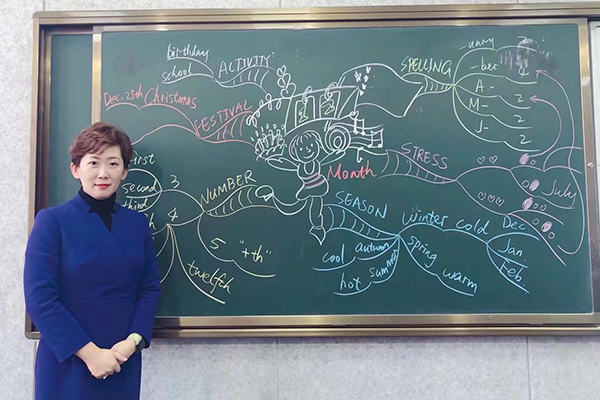 birthday
school
ACTIVITY
Dec. 25th Christmas
FESTIVAL
first
second 3
third
4
NUMBER
5 "+th"
twelfth
Month
SPELLING
-uary 2
-ber 4
A- 2
M- 2
J- 2
STRESS
July
SEASON
winter cold
Dec.
Jan.
Feb.
spring warm
cool autumn
hot summer